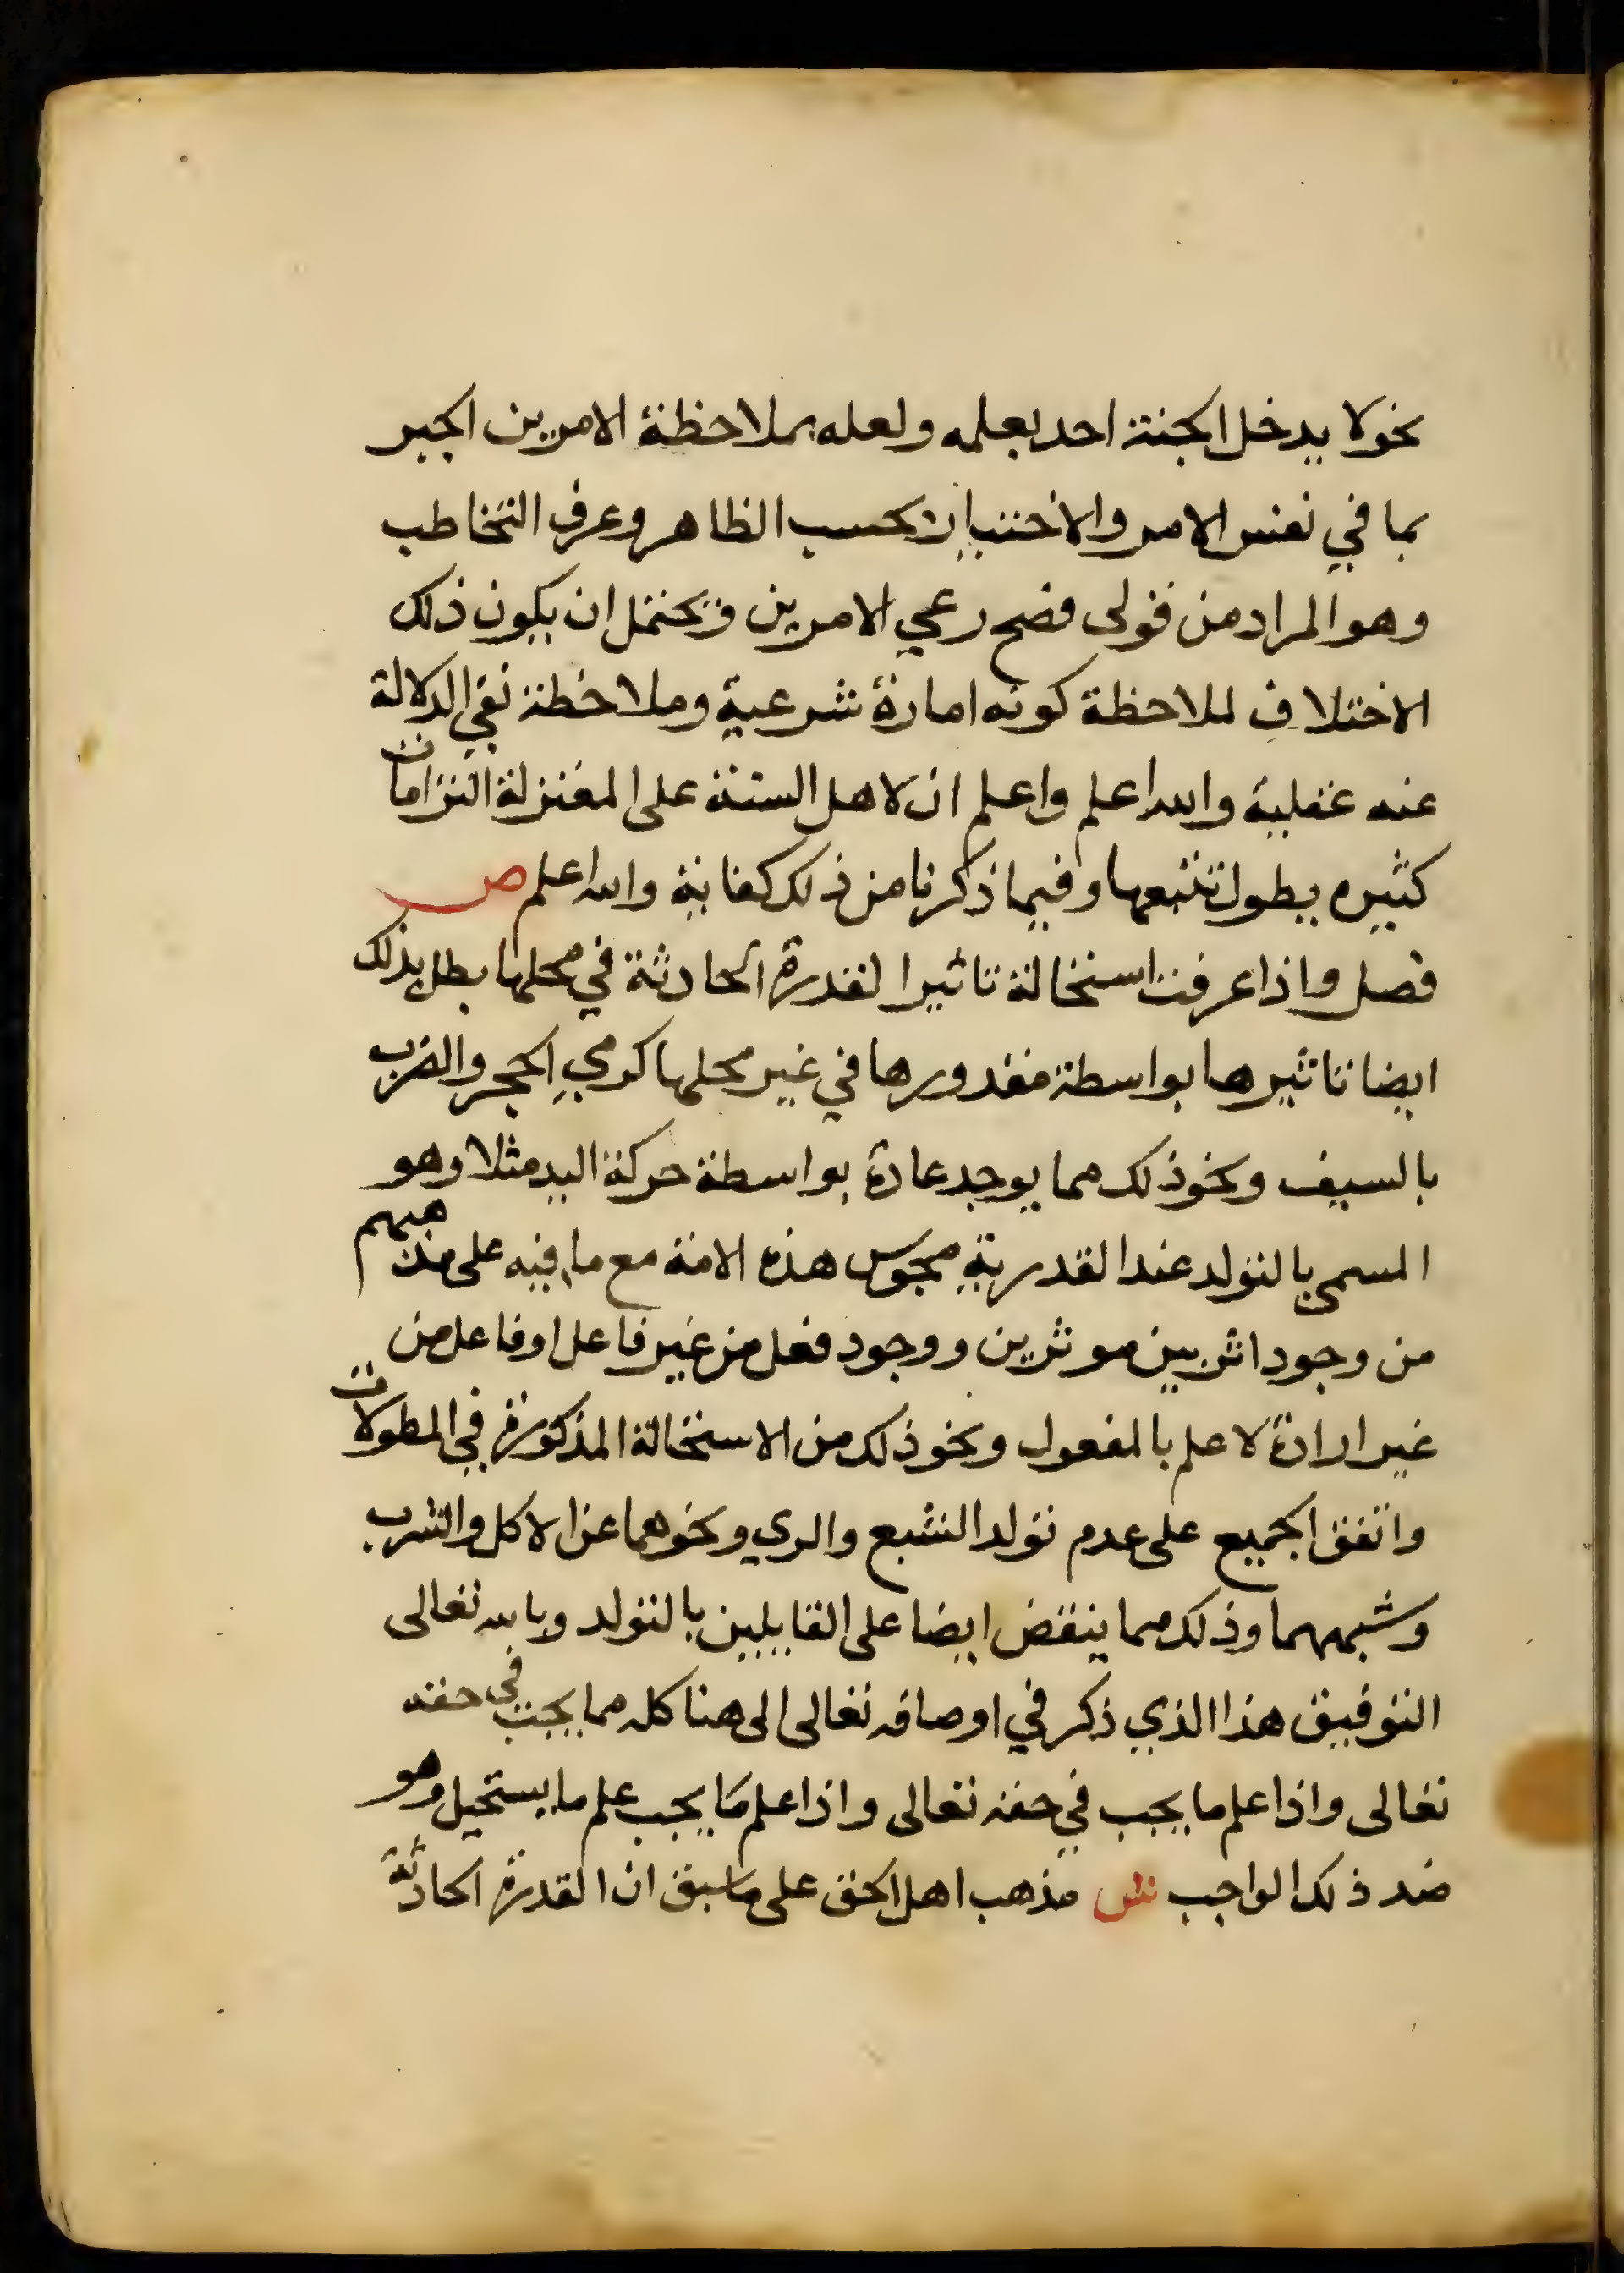 نحو لا يدخل الجنة احد بعمله ولعله بملاحظة الامرين الجبر
بما في نفس الامر والاختيار بحسب الظاهر وعرف التخاطب
وهو المراد من قولى فصح رعي الامرين ويحتمل ان يكون ذلك
الاختلاف لملاحظة كونه امارة شرعية وملاحظة نفي الدلالة
عنه عقلية والله اعلم واعلم ان لاهل السنة على المعتزلة التزامات
كثيره يطول تتبعها وفيما ذكرنا من ذلك كفاية والله اعلم ص
فصل واذا عرفت استحالة تاثير القدرة الحادثة في محلها بطل بذلك
ايضا تاثيرها بواسطة مقدورها في غير محلها كرمي الحجر والضرب
بالسيف ونحو ذلك مما يوجد عادة بواسطة حركة اليد مثلا وهو
المسمى بالتولد عند القدرية مجوس هذه الامة مع ما فيه على مذهبهم
من وجود اثر بين موثرين ووجود فعل من غير فاعل او فاعل من
غير ارادة لا علم بالمفعول ونحو ذلك من الاستحالة المذكورة في المطولات
واتفق الجميع على عدم تولد الشبع والري ونحوهما عن الاكل والشرب
وشبههما وذلك مما ينقض ايضا على القايلين بالتولد وبالله تعالى
التوفيق هذا الذي ذكر في اوصافه تعالى الى هنا كله مما يجب في حقه
تعالى واذا علم ما يجب في حقه تعالى واذا علم ما يجب علم ما يستحيل وهو
ضد ذلك الواجب ش مذهب اهل الحق على ما سبق ان القدرة الحادثة